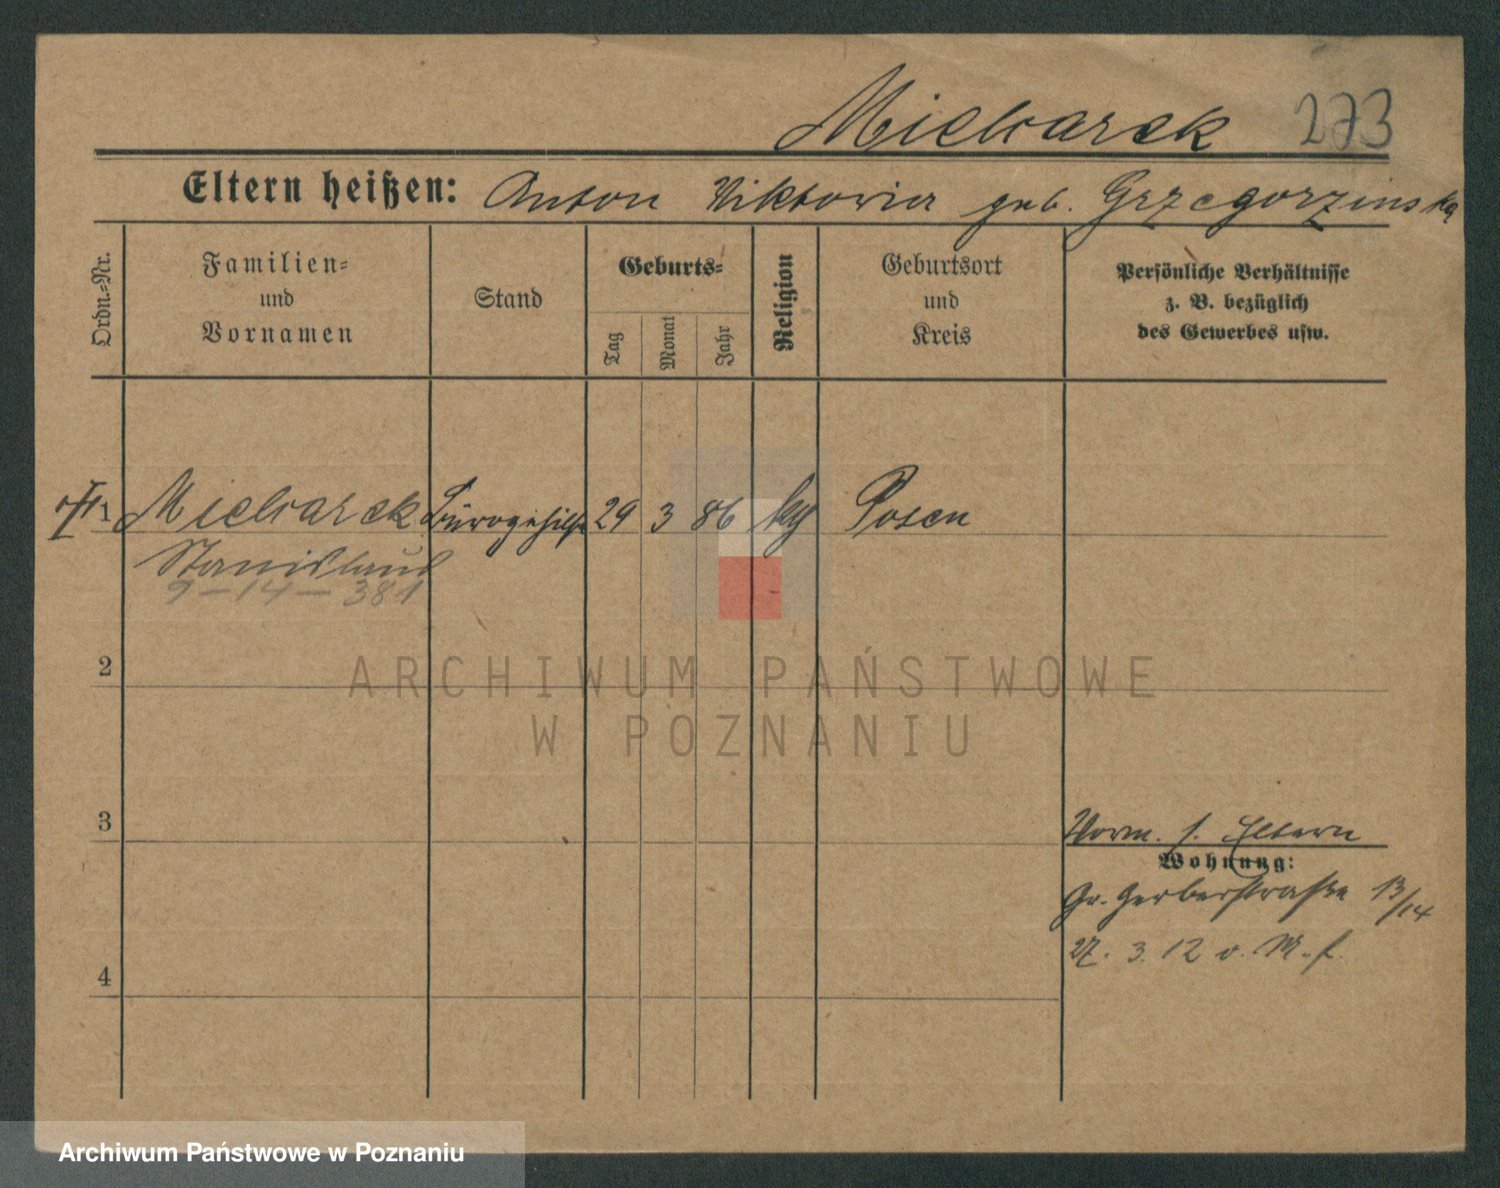 Mielcarek 273
Eltern heißen: Anton Viktoria geb. Grzegorzinska
Ordn.-Nr.
Familien-
und
Vornamen
Stand
Geburts-
Tag
Monat
Jahr
Religion
Geburtsort
und
Kreis
Persönliche Verhältnisse
z. B. bezüglich
des Gewerbes usw.
1 Mielcarek Bürogehilfe 29 3 86 kg Posen
Stanislaus
9-14-381
2
ARCHIWUM PAŃSTWOWE
W POZNANIU
3
Vorm. s. Eltern
Wohnung:
Gr. Gerberstraße 13/14
27. 3. 12 v. M.
4
Archiwum Państwowe w Poznaniu